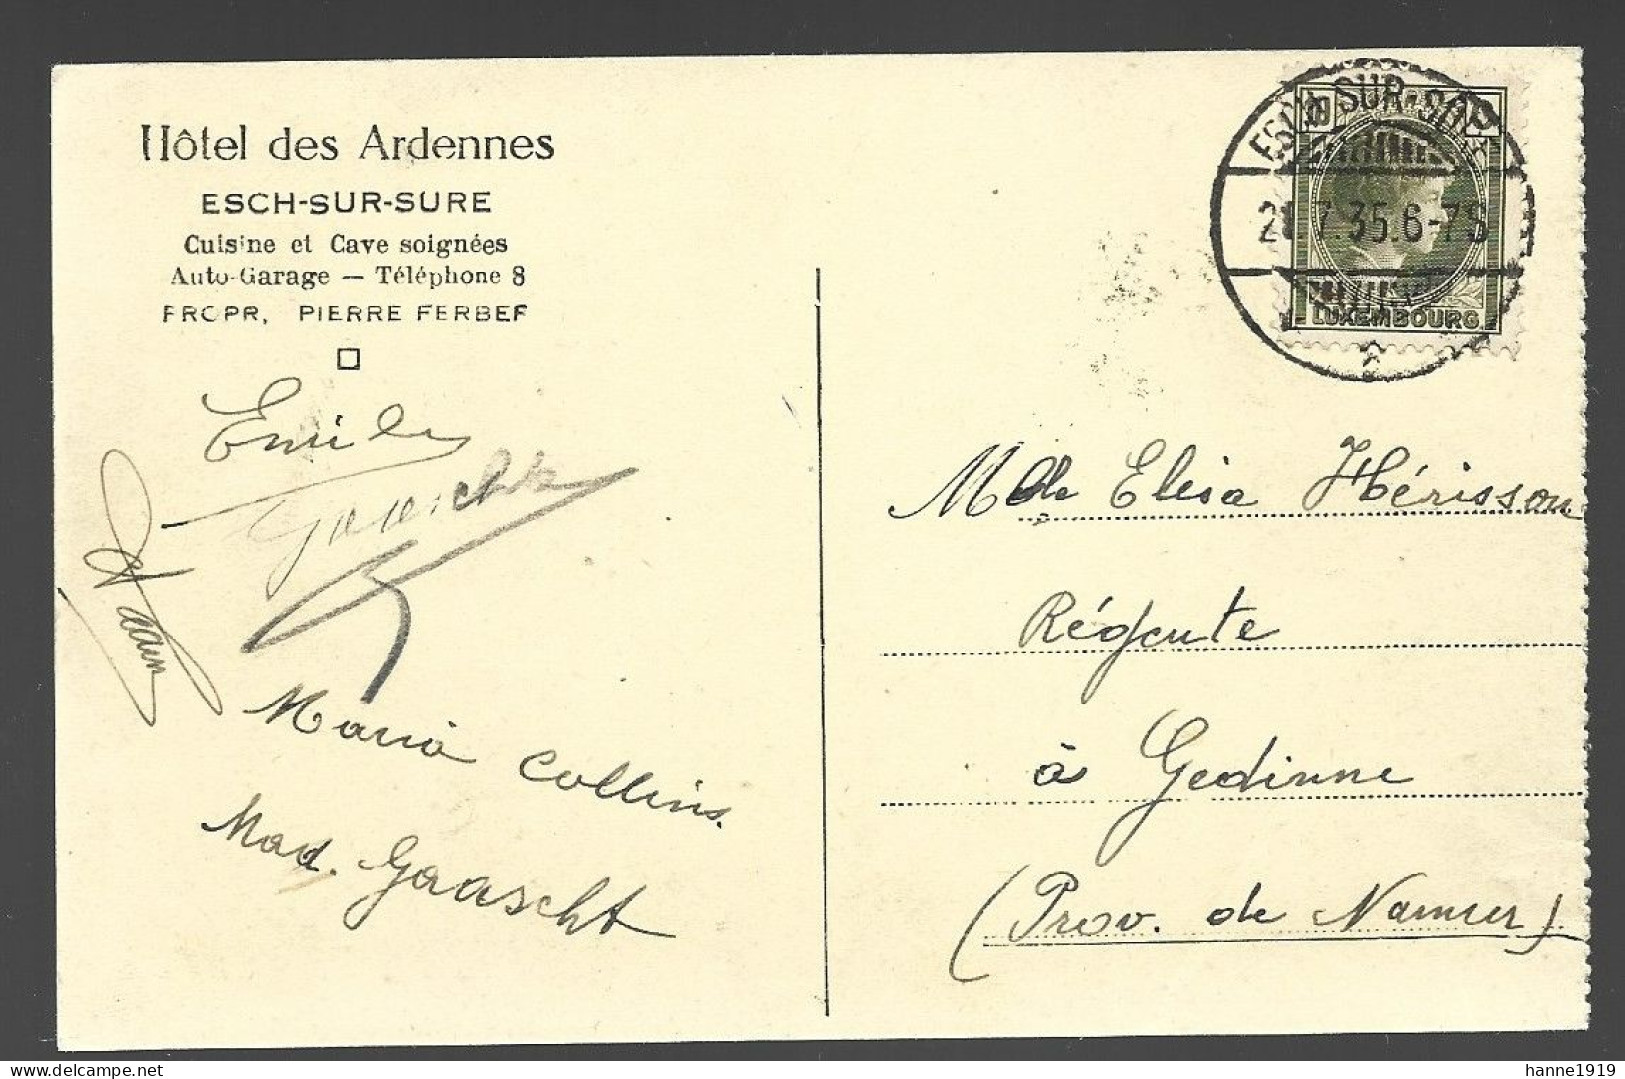 Hôtel des Ardennes
ESCH-SUR-SURE
Cuisine et Cave soignées
Auto-Garage — Téléphone 8
PROPR. PIERRE FERBER
ESCH-SUR-SÛRE
21.7.35.6-7S
LUXEMBOURG
Emile
Gaascht
Maria Collins.
Mad. Gaascht
Mlle Elisa Hérisson
Régente
à Gedinne
(Prov. de Namur)
hanne1919